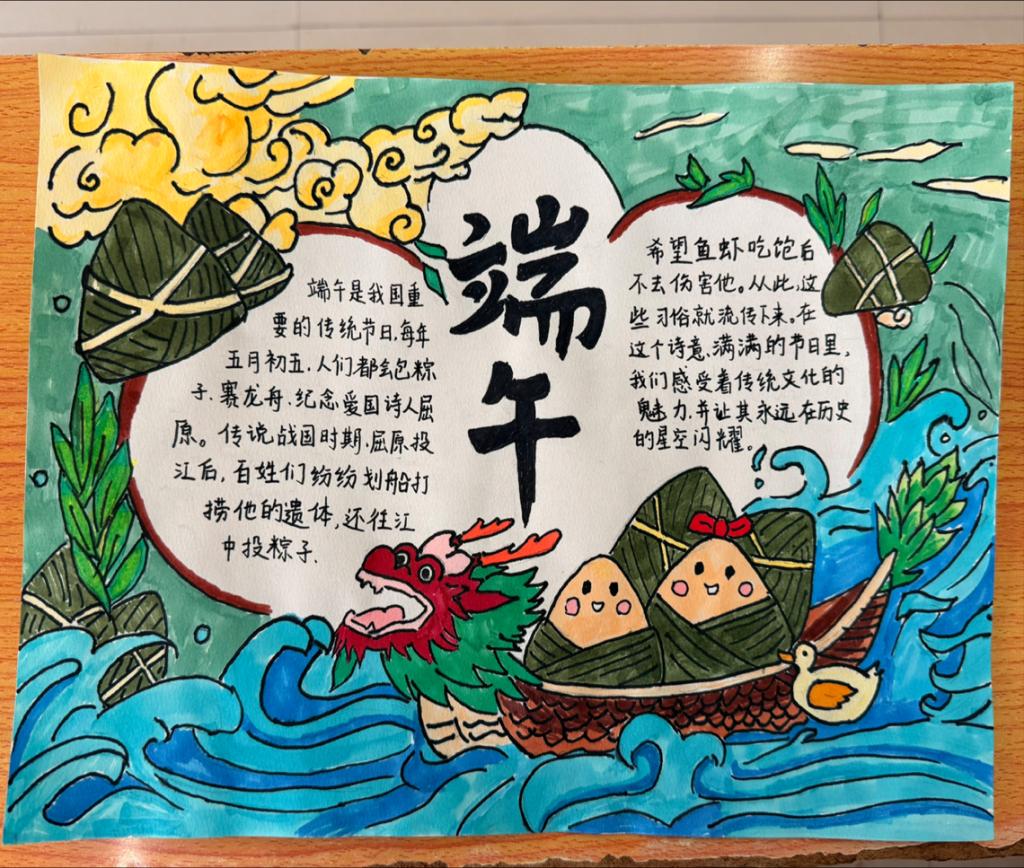 端午
端午是我国重
要的传统节日,每年
五月初五,人们都会包粽
子、赛龙舟、纪念爱国诗人屈
原。传说战国时期,屈原投
江后,百姓们纷纷划船打
捞他的遗体,还往江
中投粽子,
希望鱼虾吃饱后
不去伤害他。从此,这
些习俗就流传下来。在
这个诗意满满的节日里,
我们感受着传统文化的
魅力,并让其永远在历史
的星空闪耀。